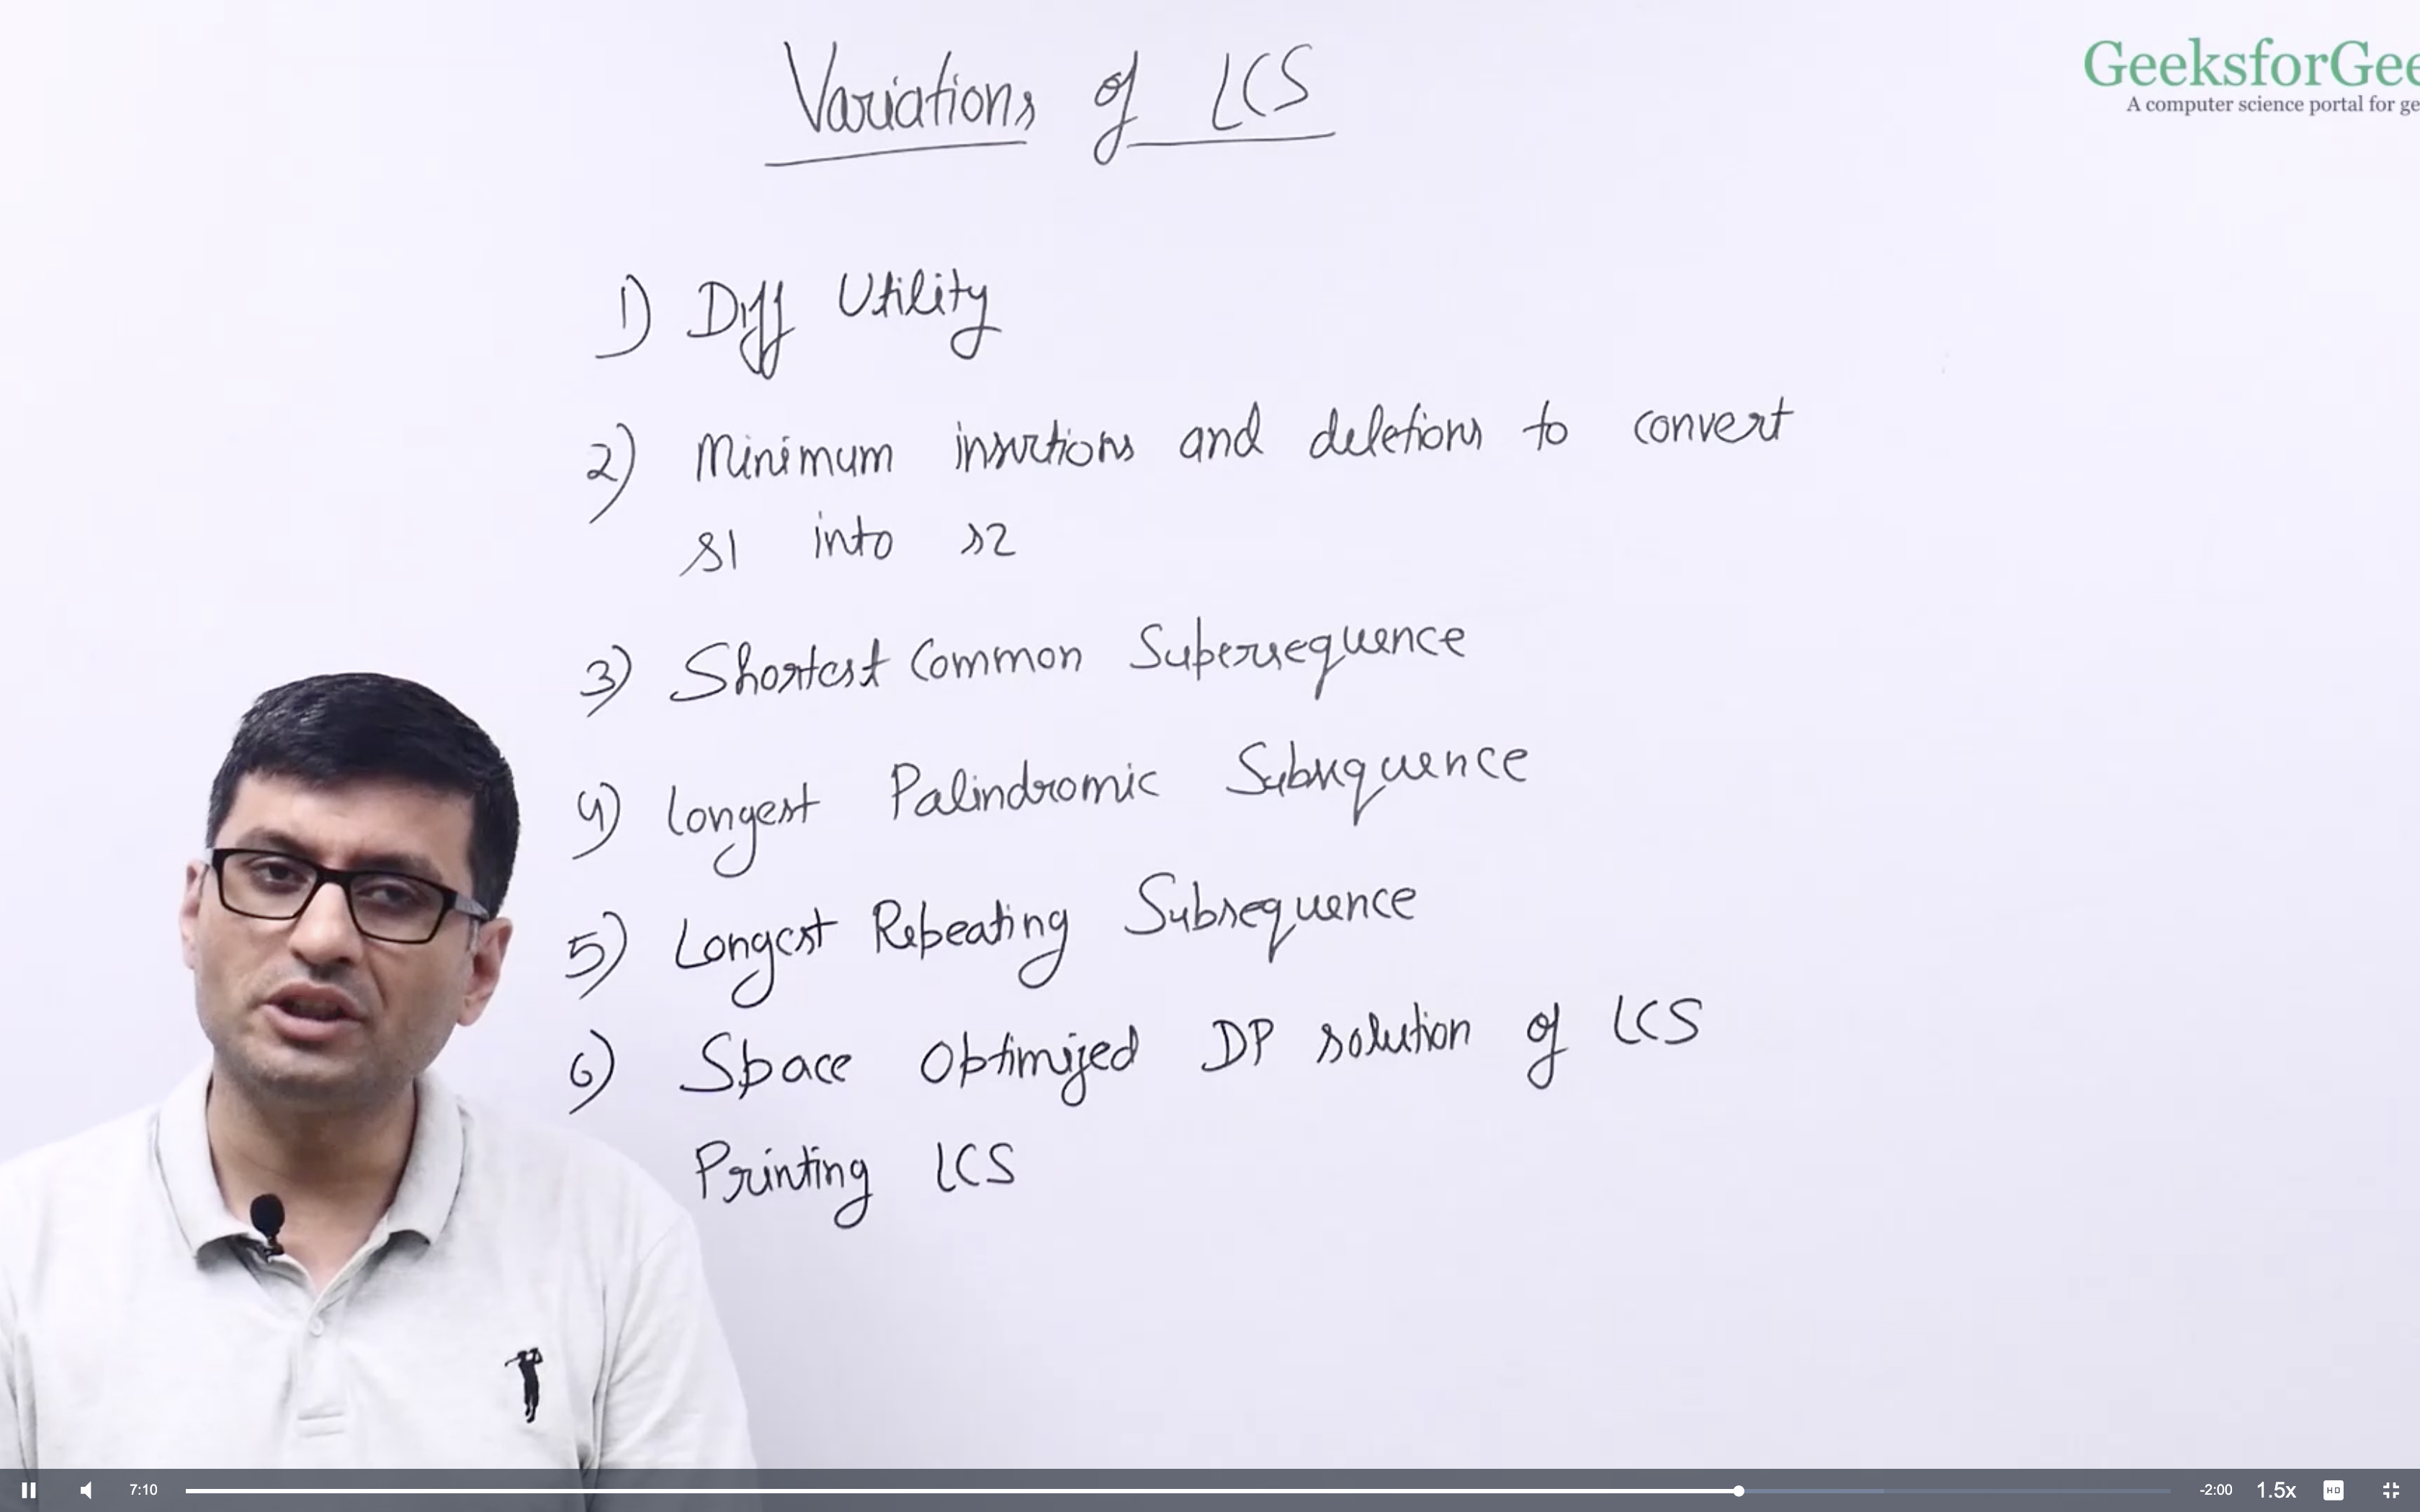 Variations of LCS
GeeksforGee
A computer science portal for ge
1) Diff Utility
2) Minimum insertions and deletions to convert
s1 into s2
3) Shortest Common Supersequence
4) Longest Palindromic Subsequence
5) Longest Repeating Subsequence
6) Space Optimized DP solution of LCS
Printing LCS
7:10
-2:00
1.5x
HD